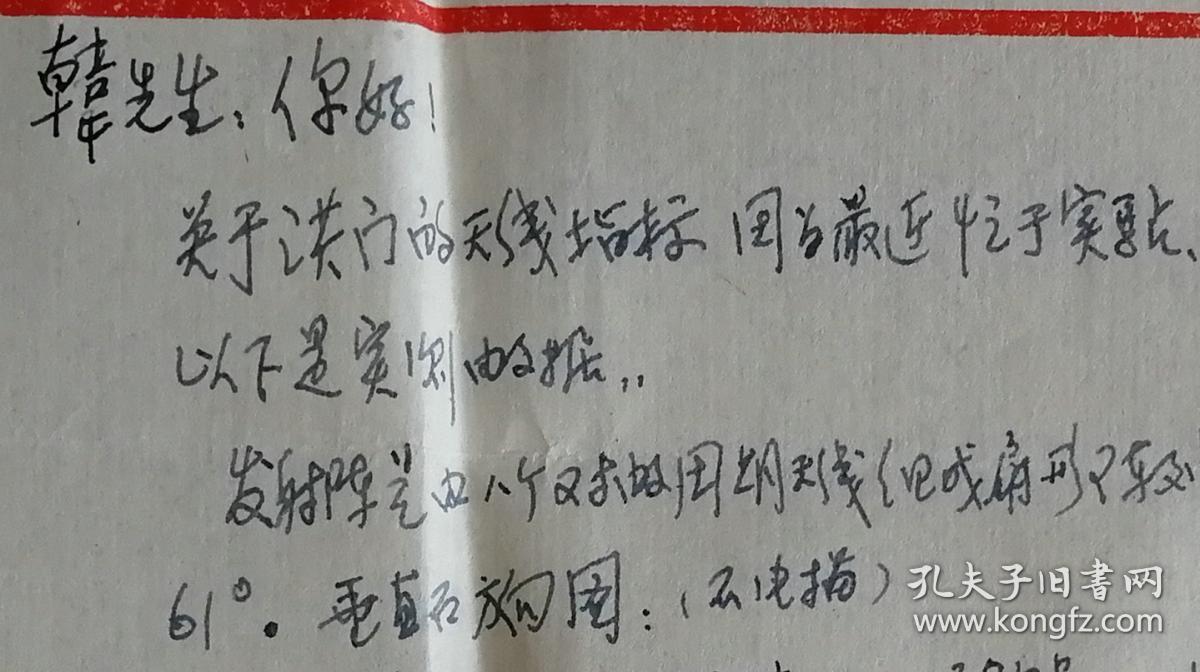 韩先生：你好！
关于洪门的天线指标 因为最近忙于实验、
以下是实测数据..
发射阵是由八个对数周期天线组成扇形
61°. 垂直面方向图：（不电扫）
孔夫子旧书网
www.kongfz.com